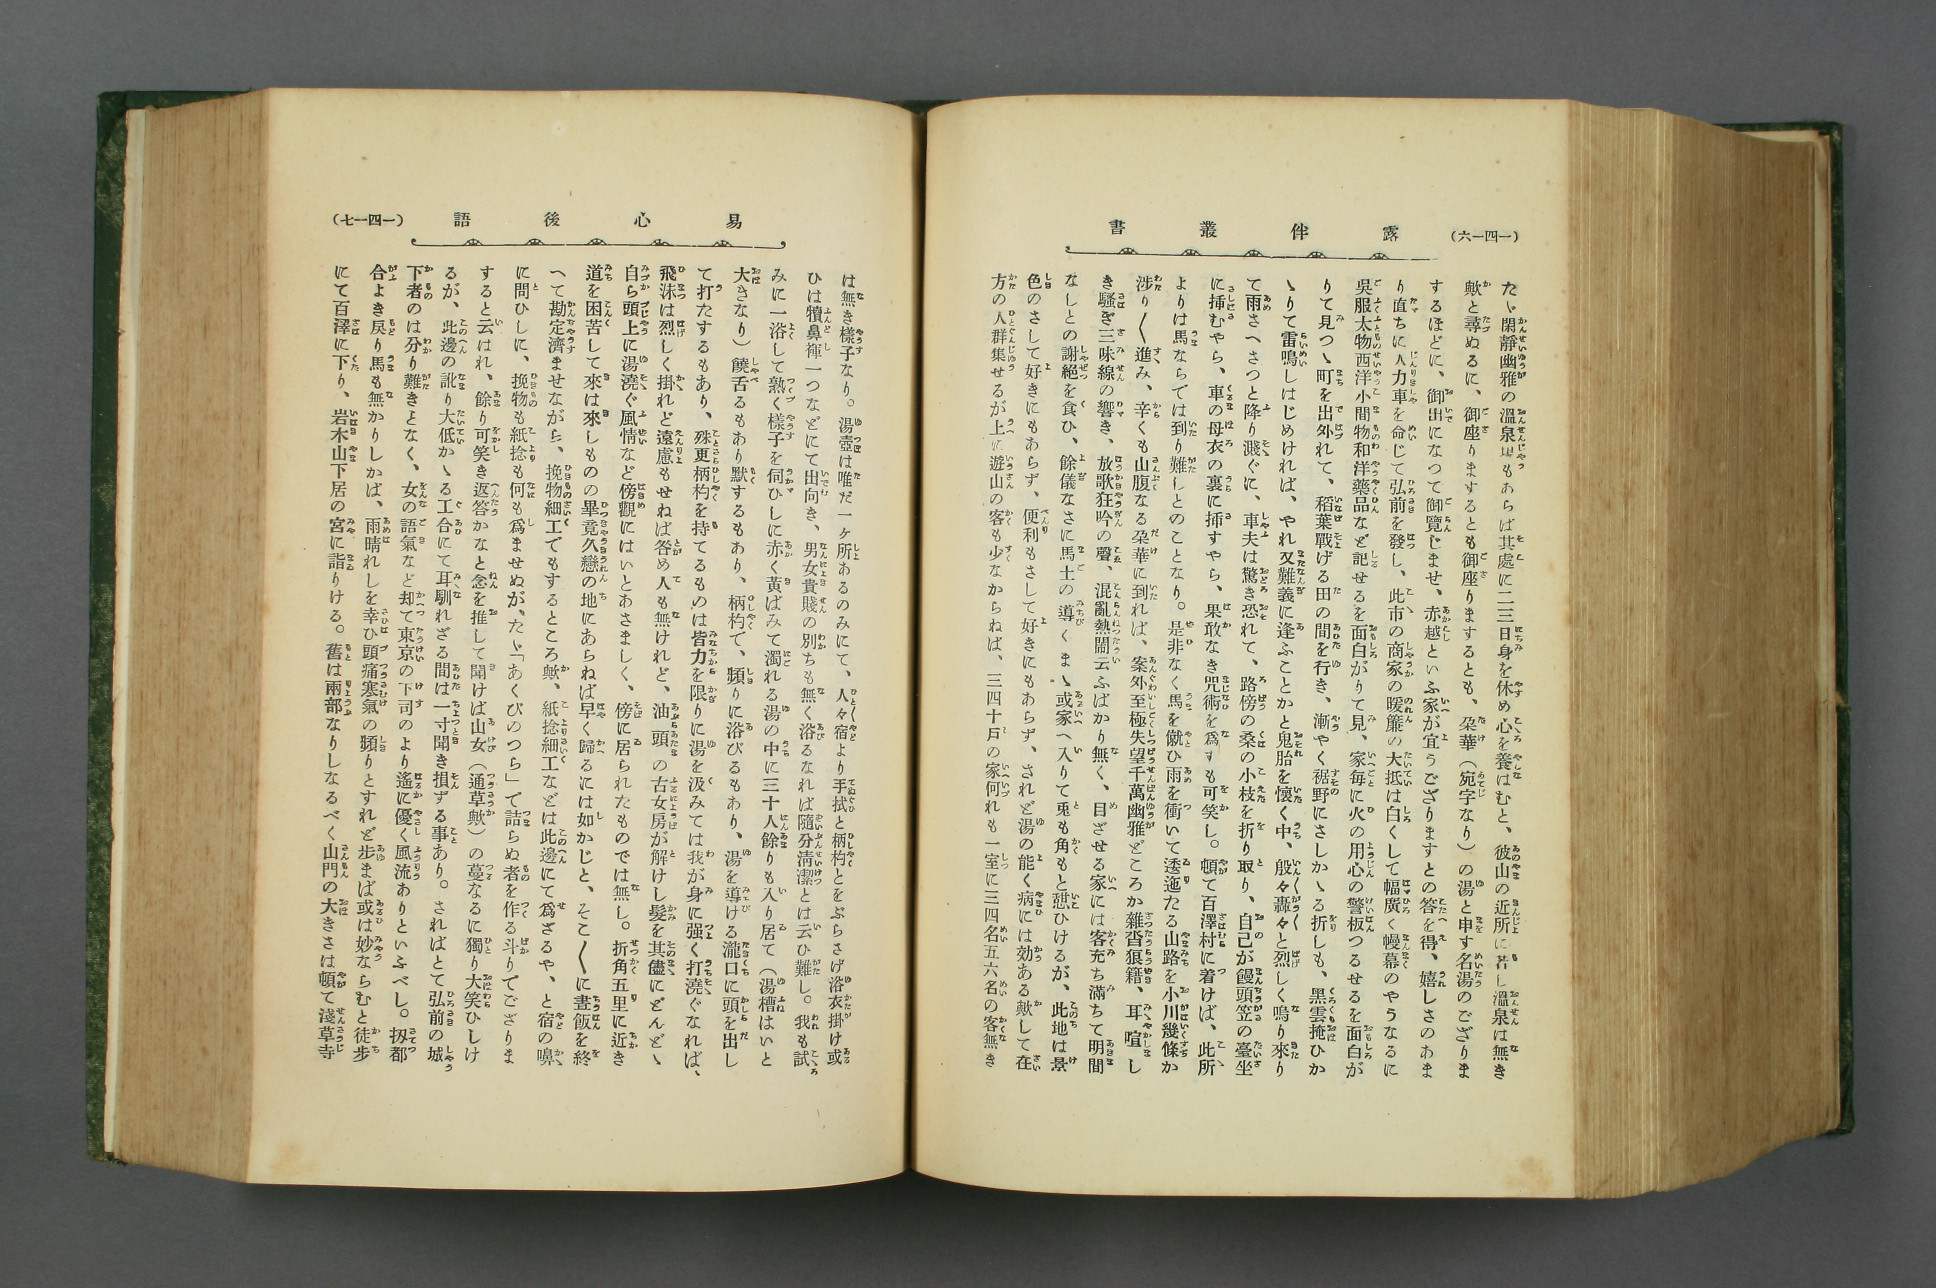 露伴叢書
(一四一六)
たゞ閑靜幽雅の溫泉場もあらば其處に二三日身を休め心を養はむと、彼山の近所に若し溫泉は無き
歟と尋ぬるに、御座りまするとも御座りまするとも、朶華（宛字なり）の湯と申す名湯のござりま
するほどに、御出になつて御覽じませ、赤越といふ家が宜うござりますとの答を得、嬉しさのあま
り直ちに人力車を命じて弘前を發し、此市の商家の暖簾の大抵は白くして幅廣く幔幕のやうなるに
吳服太物西洋小間物和洋藥品など記せるを面白がりて見、家每に火の用心の警板つるせるを面白が
りて見つゝ町を出外れて、稻葉戰げる田の間を行き、漸やく裾野にさしかゝる折しも、黑雲掩ひか
ゝりて雷鳴しはじめければ、やれ又難義に逢ふことかと鬼胎を懷く中、殷々轟々と烈しく鳴り來り
て雨さへさつと降り濺ぐに、車夫は驚き恐れて、路傍の桑の小枝を折り取り、自己が饅頭笠の臺坐
に挿むやら、車の母衣の裏に挿すやら、果敢なき咒術を爲すも可笑し。頓て百澤村に着けば、此所
よりは馬ならでは到り難しとのことなり。是非なく馬を僦ひ雨を衝いて逶迤たる山路を小川幾條か
涉り〱進み、辛くも山腹なる朶華に到れば、案外至極失望千萬幽雅どころか雜沓狼籍、耳喧し
き騷ぎ三味線の響き、放歌狂吟の聲、混亂熱鬧云ふばかり無く、目ざせる家には客充ち滿ちて明間
なしとの謝絕を食ひ、餘儀なさに馬士の導くまゝ或家へ入りて兎も角もと憇ひけるが、此地は景
色のさして好きにもあらず、便利もさして好きにもあらず、されど湯の能く病には効ある歟して在
方の人群集せるが上に遊山の客も少なからねば、三四十戶の家何れも一室に三四名五六名の客無き
易心後語
(一四一七)
は無き樣子なり。湯壺は唯だ一ヶ所あるのみにて、人々宿より手拭と柄杓とをぶらさげ浴衣掛け或
ひは犢鼻褌一つなどにて出向き、男女貴賤の別ちも無く浴るなれば隨分淸潔とは云ひ難し。我も試
みに一浴して熟く樣子を伺ひしに赤く黃ばみて濁れる湯の中に三十人餘りも入り居て（湯槽はいと
大きなり）饒舌るもあり默するもあり、柄杓で、頻りに浴びるもあり、湯を導ける瀧口に頭を出し
て打たするもあり、殊更柄杓を持てるものは皆力を限りに湯を汲みては我が身に强く打澆ぐなれば、
飛沫は烈しく掛れど遠慮もせねば咎め人も無けれど、油頭の古女房が解けし髮を其儘にどんどゝ
自ら頭上に湯澆ぐ風情など傍觀にはいとあさましく、傍に居られたものでは無し。折角五里に近き
道を困苦して來は來しものの畢竟久戀の地にあらねば早く歸るには如かじと、そこ〱に晝飯を終
へて勘定濟ませながら、挽物細工でもするところ歟、紙捻細工などは此邊にて爲ざるや、と宿の嚊
に問ひしに、挽物も紙捻も何も爲ませぬが、たゞ「あくびのつら」で詰らぬ者を作る斗りでござりま
すると云はれ、餘り可笑き返答かなと念を推して聞けば山女（通草歟）の蔓なるに獨り大笑ひしけ
るが、此邊の訛り大低かゝる工合にて耳馴れざる間は一寸聞き損ずる事あり。さればとて弘前の城
下者のは分り難きとなく、女の語氣など却て東京の下司のより遙に優く風流ありといふべし。扨都
合よき戾り馬も無かりしかば、雨晴れしを幸ひ頭痛寒氣の頻りとすれど步まば或は妙ならむと徒步
にて百澤に下り、岩木山下居の宮に詣りける。舊は兩部なりしなるべく山門の大きさは頓て淺草寺